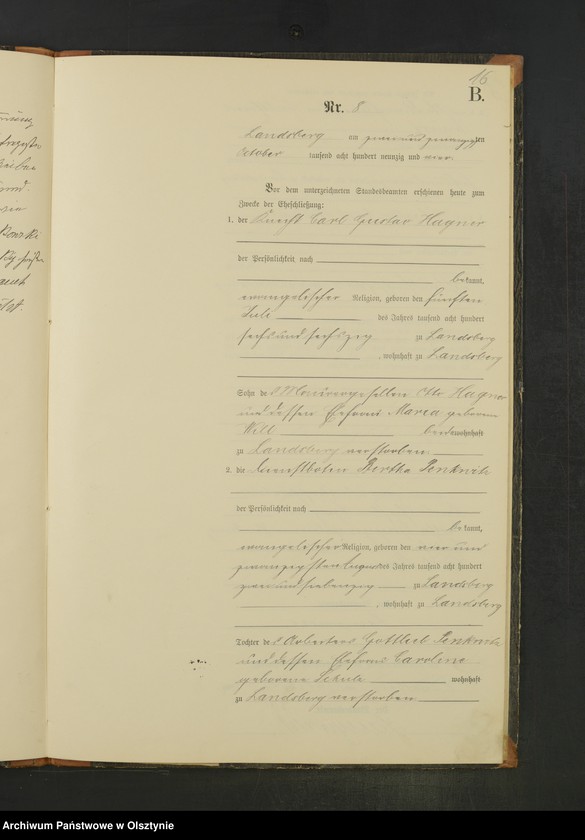 16
B.
Nr. 8
Landsberg am zwei und zwanzigsten
October tausend acht hundert neunzig und vier.
Vor dem unterzeichneten Standesbeamten erschienen heute zum
Zwecke der Eheschließung:
1. der Knecht Carl Gustav Hagner
der Persönlichkeit nach
bekannt,
evangelischer Religion, geboren den fünften
Juli des Jahres tausend acht hundert
sechs und sechszig zu Landsberg
, wohnhaft zu Landsberg
Sohn des Maurergesellen Otto Hagner
und dessen Ehefrau Maria geborene
Will beide wohnhaft
zu Landsberg verstorben
2. die Dienstboten Bertha
der Persönlichkeit nach
bekannt,
evangelischer Religion, geboren den vier und
zwanzigsten August des Jahres tausend acht hundert
zwei und siebenzig zu Landsberg
, wohnhaft zu Landsberg
Tochter des Arbeiters Gottlieb
und dessen Ehefrau Caroline
geborene Schulz wohnhaft
zu Landsberg verstorben
Archiwum Państwowe w Olsztynie